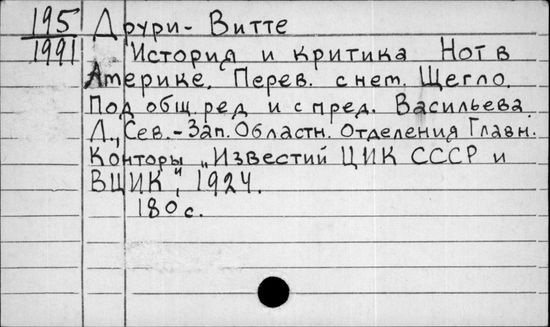 195 Друри-Витте
1991 "История и критика Нот в
Америке." Перев. с нет. Щегло.
Под общ. ред и с пред. Васильева
Л., Сев.-Зап. Областн. Отделения Главн.
Конторы „Известий ЦИК СССР и
ВЦИК", 1924.
180 с.